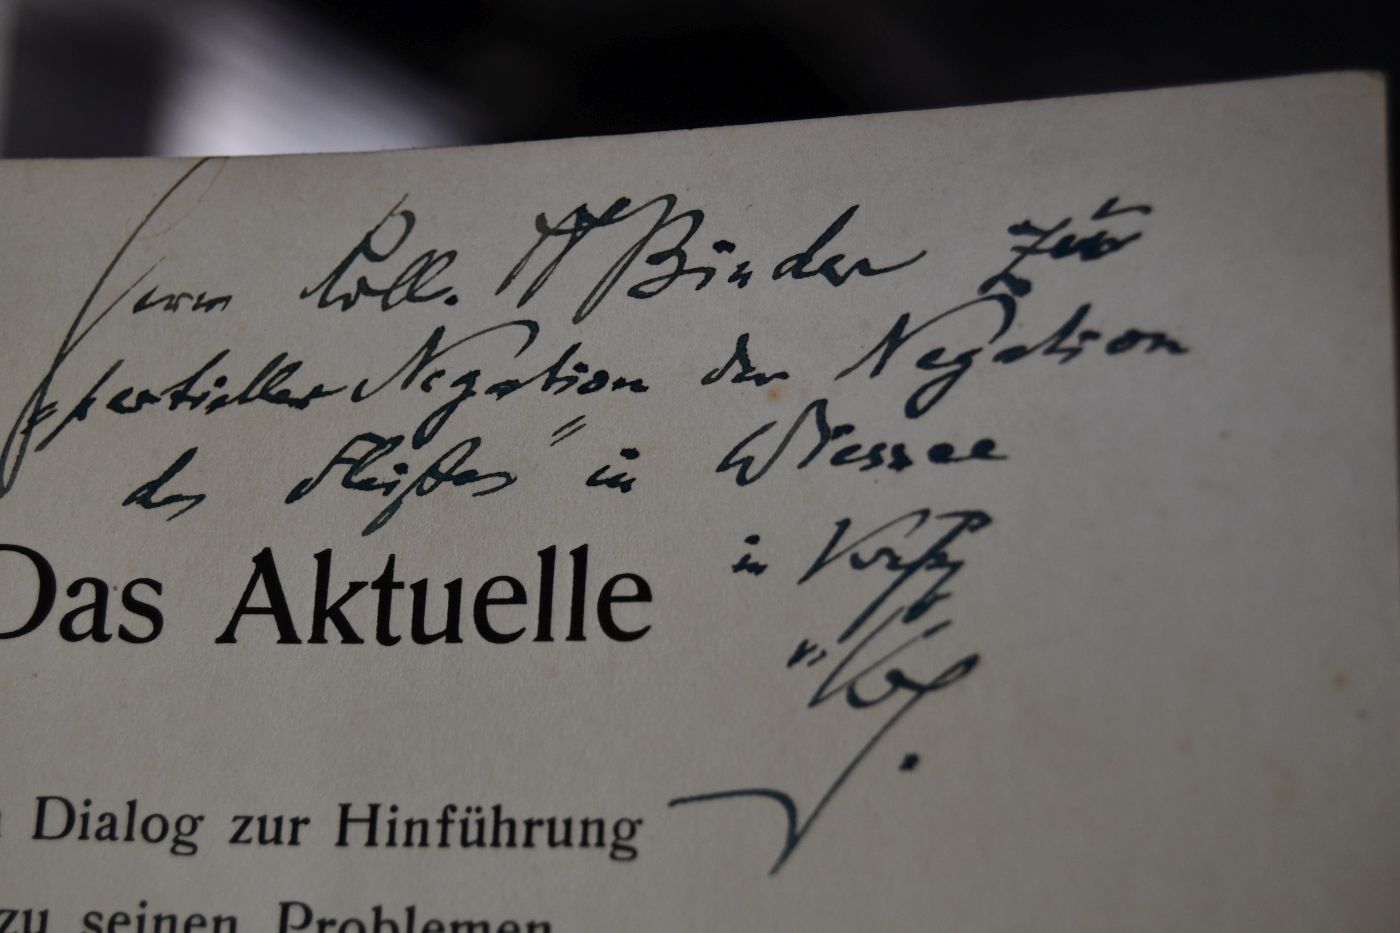 Herrn Koll. H Binder zur
partieller Negation der Negation
des Fleißes" in Wiessee
in
Das Aktuelle
Dialog zur Hinführung
zu seinen Problemen